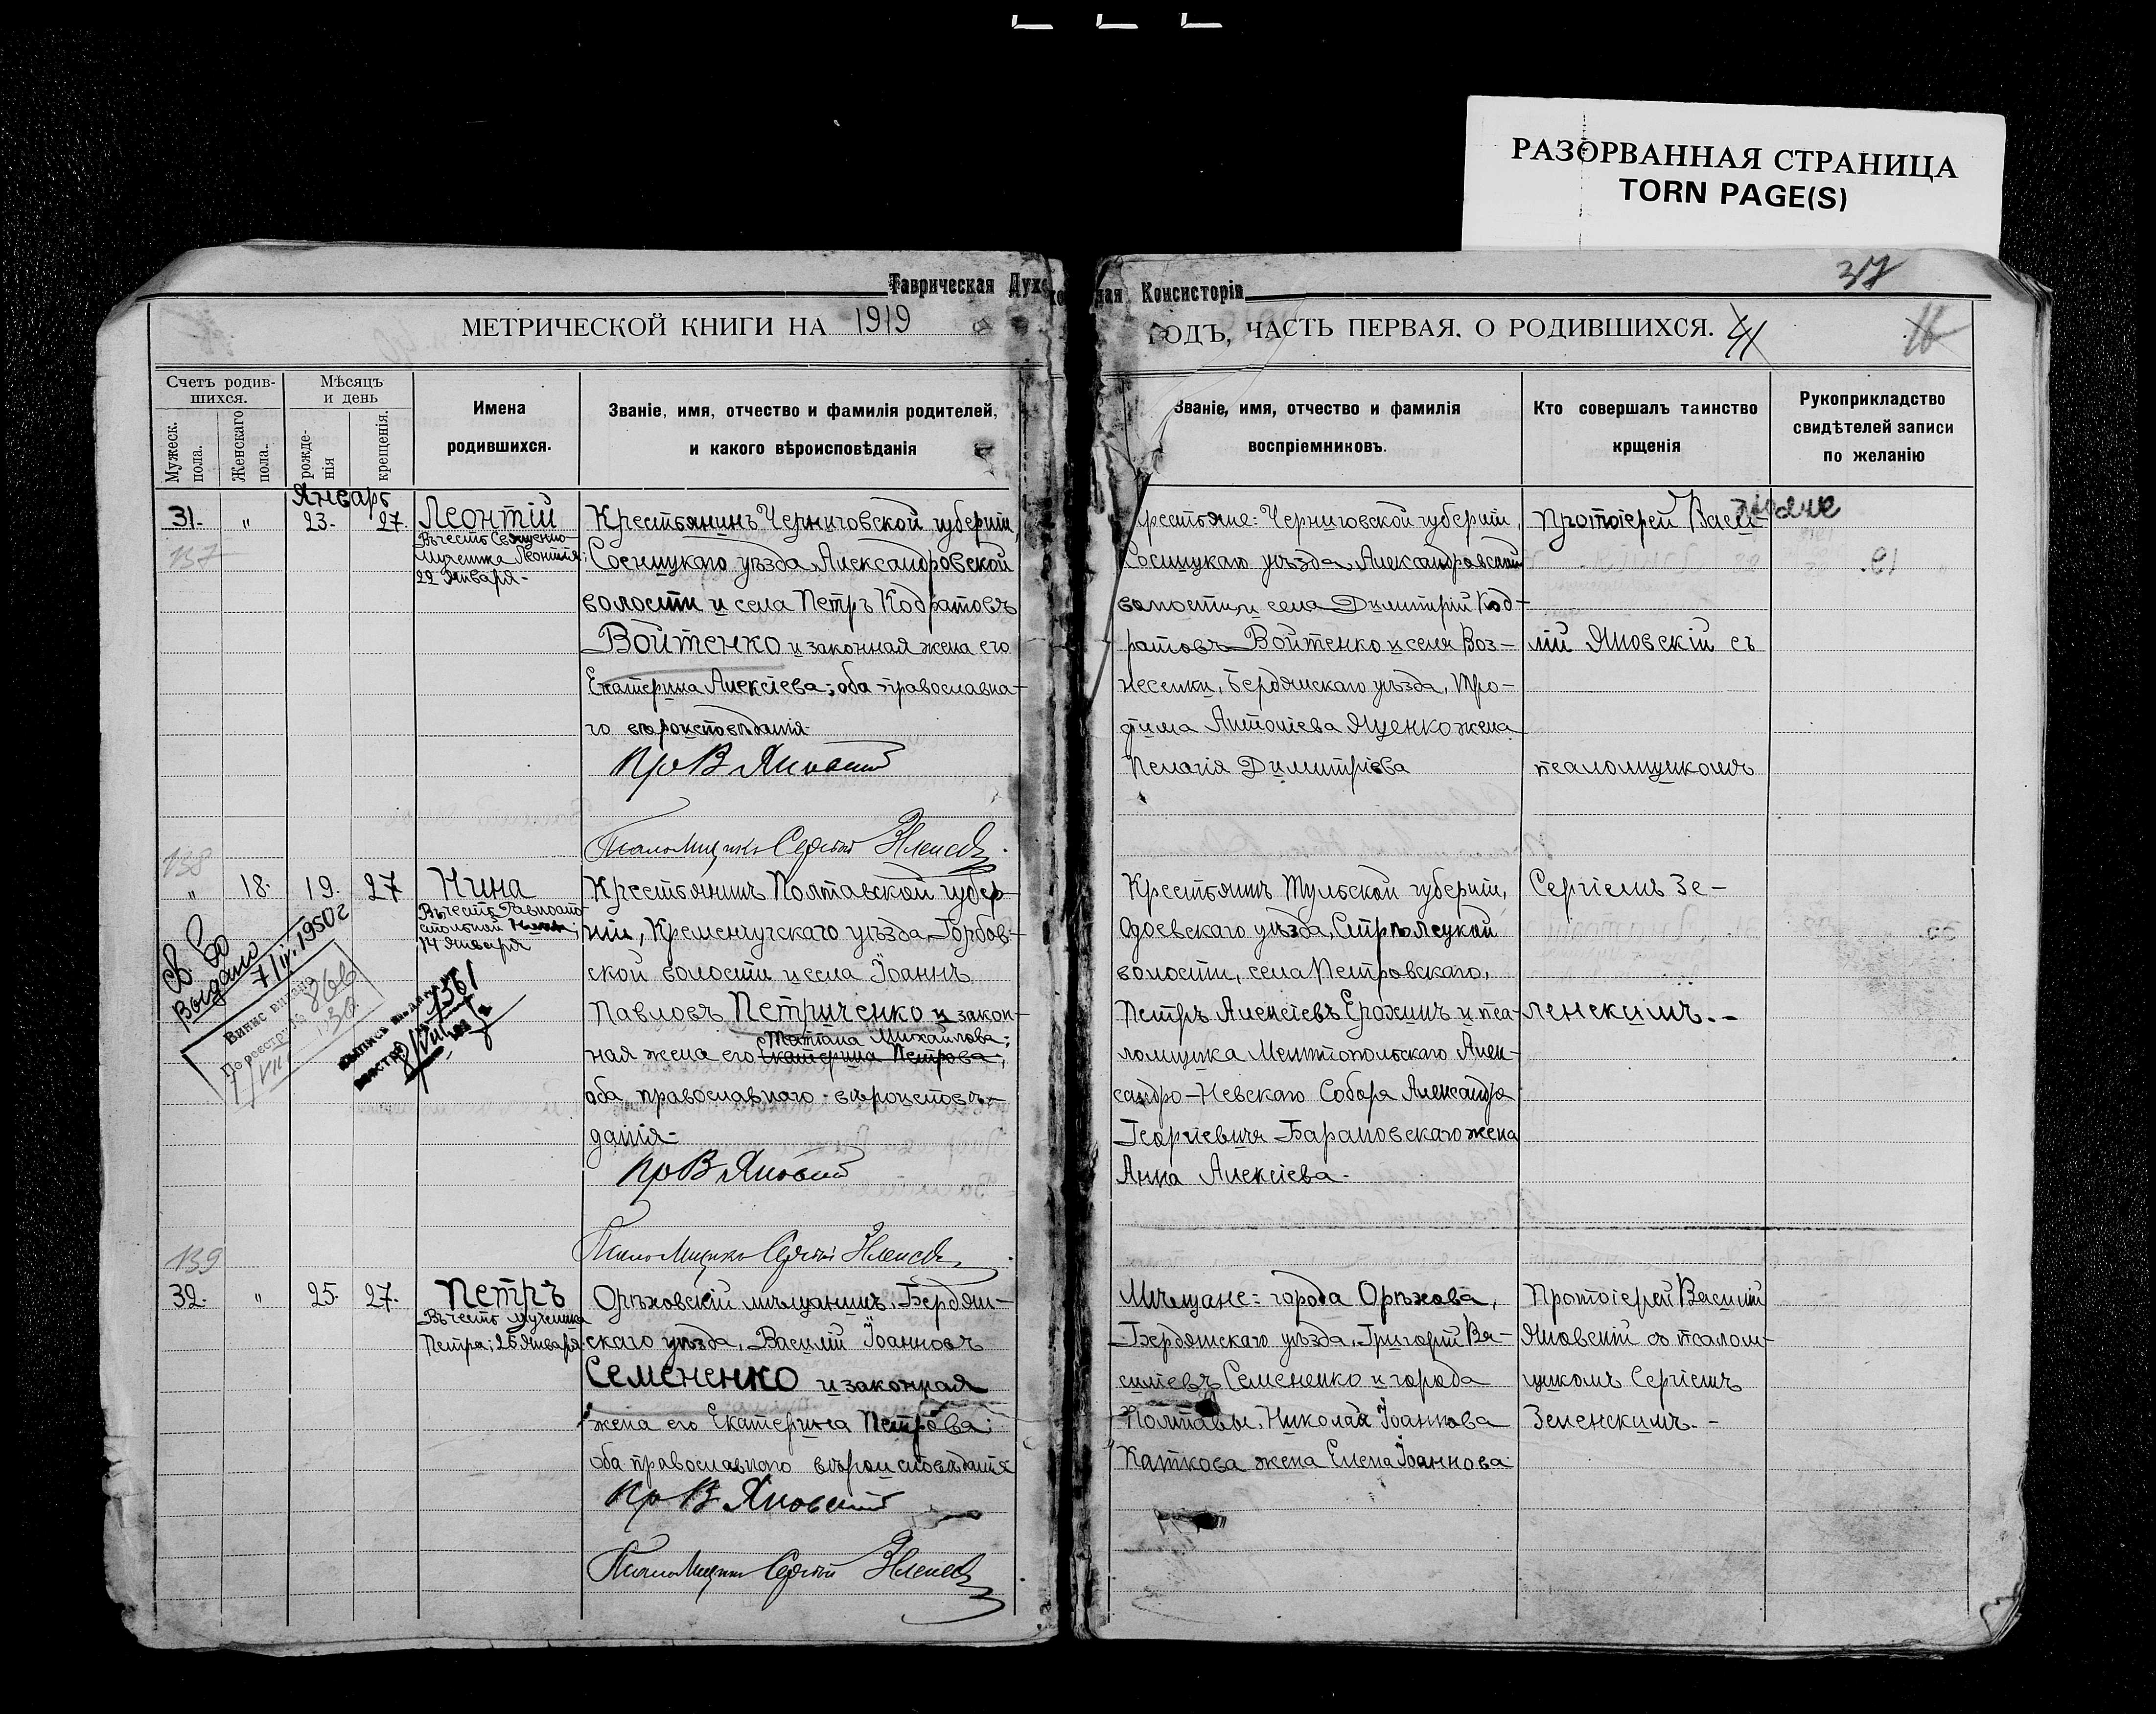 РАЗОРВАННАЯ СТРАНИЦА
TORN PAGE(S)
37
Таврическая Духо
ная Консисторія
МЕТРИЧЕСКОЙ КНИГИ НА 1919
ГОДЪ, ЧАСТЬ ПЕРВАЯ. О РОДИВШИХСЯ. 41
16
Счетъ родив-
шихся.
Мужеск. пола.
Женскаго пола.
Мѣсяцъ
и день
рожде-
нія
крещенія.
Имена
родившихся.
Званіе, имя, отчество и фамилія родителей,
и какого вѣроисповѣданія
Званіе, имя, отчество и фамилія
воспріемниковъ.
Кто совершалъ таинство
крщенія
Рукоприкладство
свидѣтелей записи
по желанію
Январь
31. " 23. 27.
137
Леонтій
Въ честь Священно-
мученика Леонтія;
22 Января-
Крестьянинъ Черниговской губерніи,
Сосницкаго уѣзда, Александровской
волости и села Петръ Кодратовъ
Войтенко и законная жена его
Екатерина Алексіева; оба православна-
го вѣроисповѣданія.
Пр В Яновскій
Псаломщикъ Сергій
Крестьяне: Черниговской губерніи,
Сосницкаго уѣзда, Александровской
волости, и села Димитрій Код-
ратовъ Войтенко и села Воз-
несенки, Бердянскаго уѣзда, Тро-
фима Антоніева Яценко жена
Пелагія Димитріева
Протоіерей Васи-
лій Яновскій съ
псаломщикомъ
138
" 18. 19. 27
Нина
Въ честь Равноапо-
стольной Нины;
14 Января
Крестьянинъ Полтавской губер-
ніи, Кременчугскаго уѣзда, Горбов-
ской волости и села Іоаннъ
Павловъ Петриченко и закон-
Татіана Михаилова;
ная жена его Екатерина Петрова;
оба православнаго вѣроисповѣ-
данія-
Пр В Яновскій
Псаломщикъ Сергій
Крестьянинъ Тульской губерніи,
Одоевскаго уѣзда, Стрѣлецкой
волости, села Петровскаго,
Петръ Алексіевъ Ерохинъ и пса-
ломщика Мелитопольскаго Алек-
сандро-Невскаго Собора Александра
Георгіевича Барановскаго жена
Анна Алексіева.
Сергіемъ Зе-
ленскимъ.-
Выдано 7/IV.1950г
Випис видано
По реестру № 866
1361
139
32. " 25. 27.
Петръ
Въ честь мученика
Петра; 25 Января.
Орѣховскій мѣщанинъ, Бердян-
скаго уѣзда, Василій Іоанновъ
Семененко и законная
жена его Екатерина Петрова;
оба православнаго вѣроисповѣданія
Пр В Яновскій
Псаломщикъ Сергій
Мѣщане: города Орѣхова,
Бердянскаго уѣзда, Григорій Ва-
силіевъ Семененко и города
Полтавы, Николая Іоаннова
Каткова жена Елена Іоаннова.
Протоіерей Василій
Яновскій съ псалом-
щикомъ Сергіемъ
Зеленскимъ.-